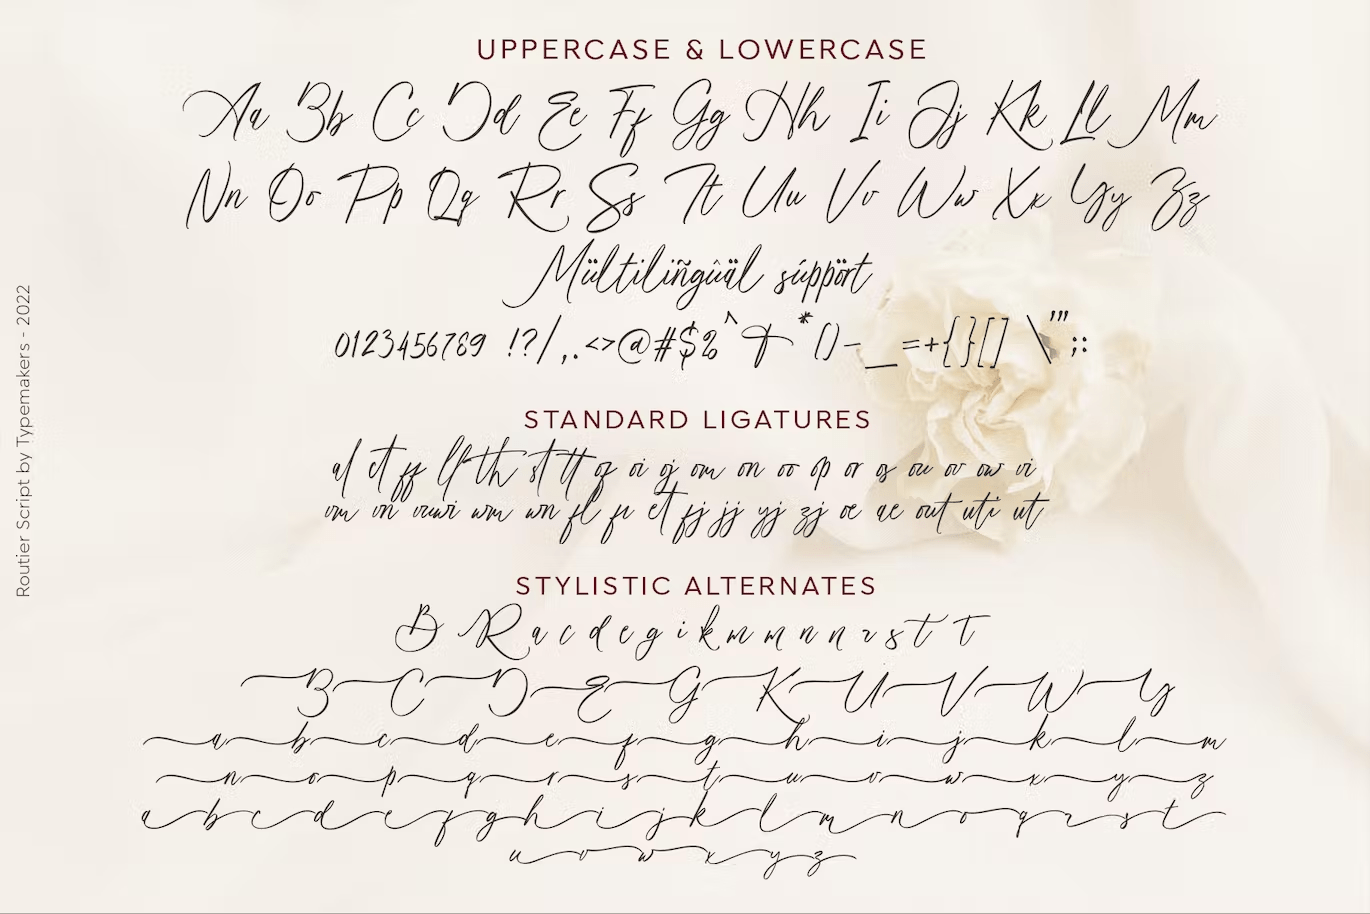 UPPERCASE & LOWERCASE
Aa Bb Cc Dd Ee Ff Gg Hh Ii Jj Kk Ll Mm
Nn Oo Pp Qq Rr Ss Tt Uu Vv Ww Xx Yy Zz
Mültiliñgûäl súppört
0123456789 !?/,.<>@#$%^&*()-_=+{}[] \'";:
STANDARD LIGATURES
al et ff lf th st tt of oi oj om on oo op or os ou ov ow vi
vm vn vuwi wm wn fl fi et fj jj yj zj oe ae out uti ut
STYLISTIC ALTERNATES
B R a c d e g i k m m n n r s t t
B C D E G K U V W Y
a b c d e f g h i j k l m
n o p q r s t u v w x y z
a b c d e f g h i j k l m n o q r s t
u v w x y z
Routier Script by Typemakers - 2022